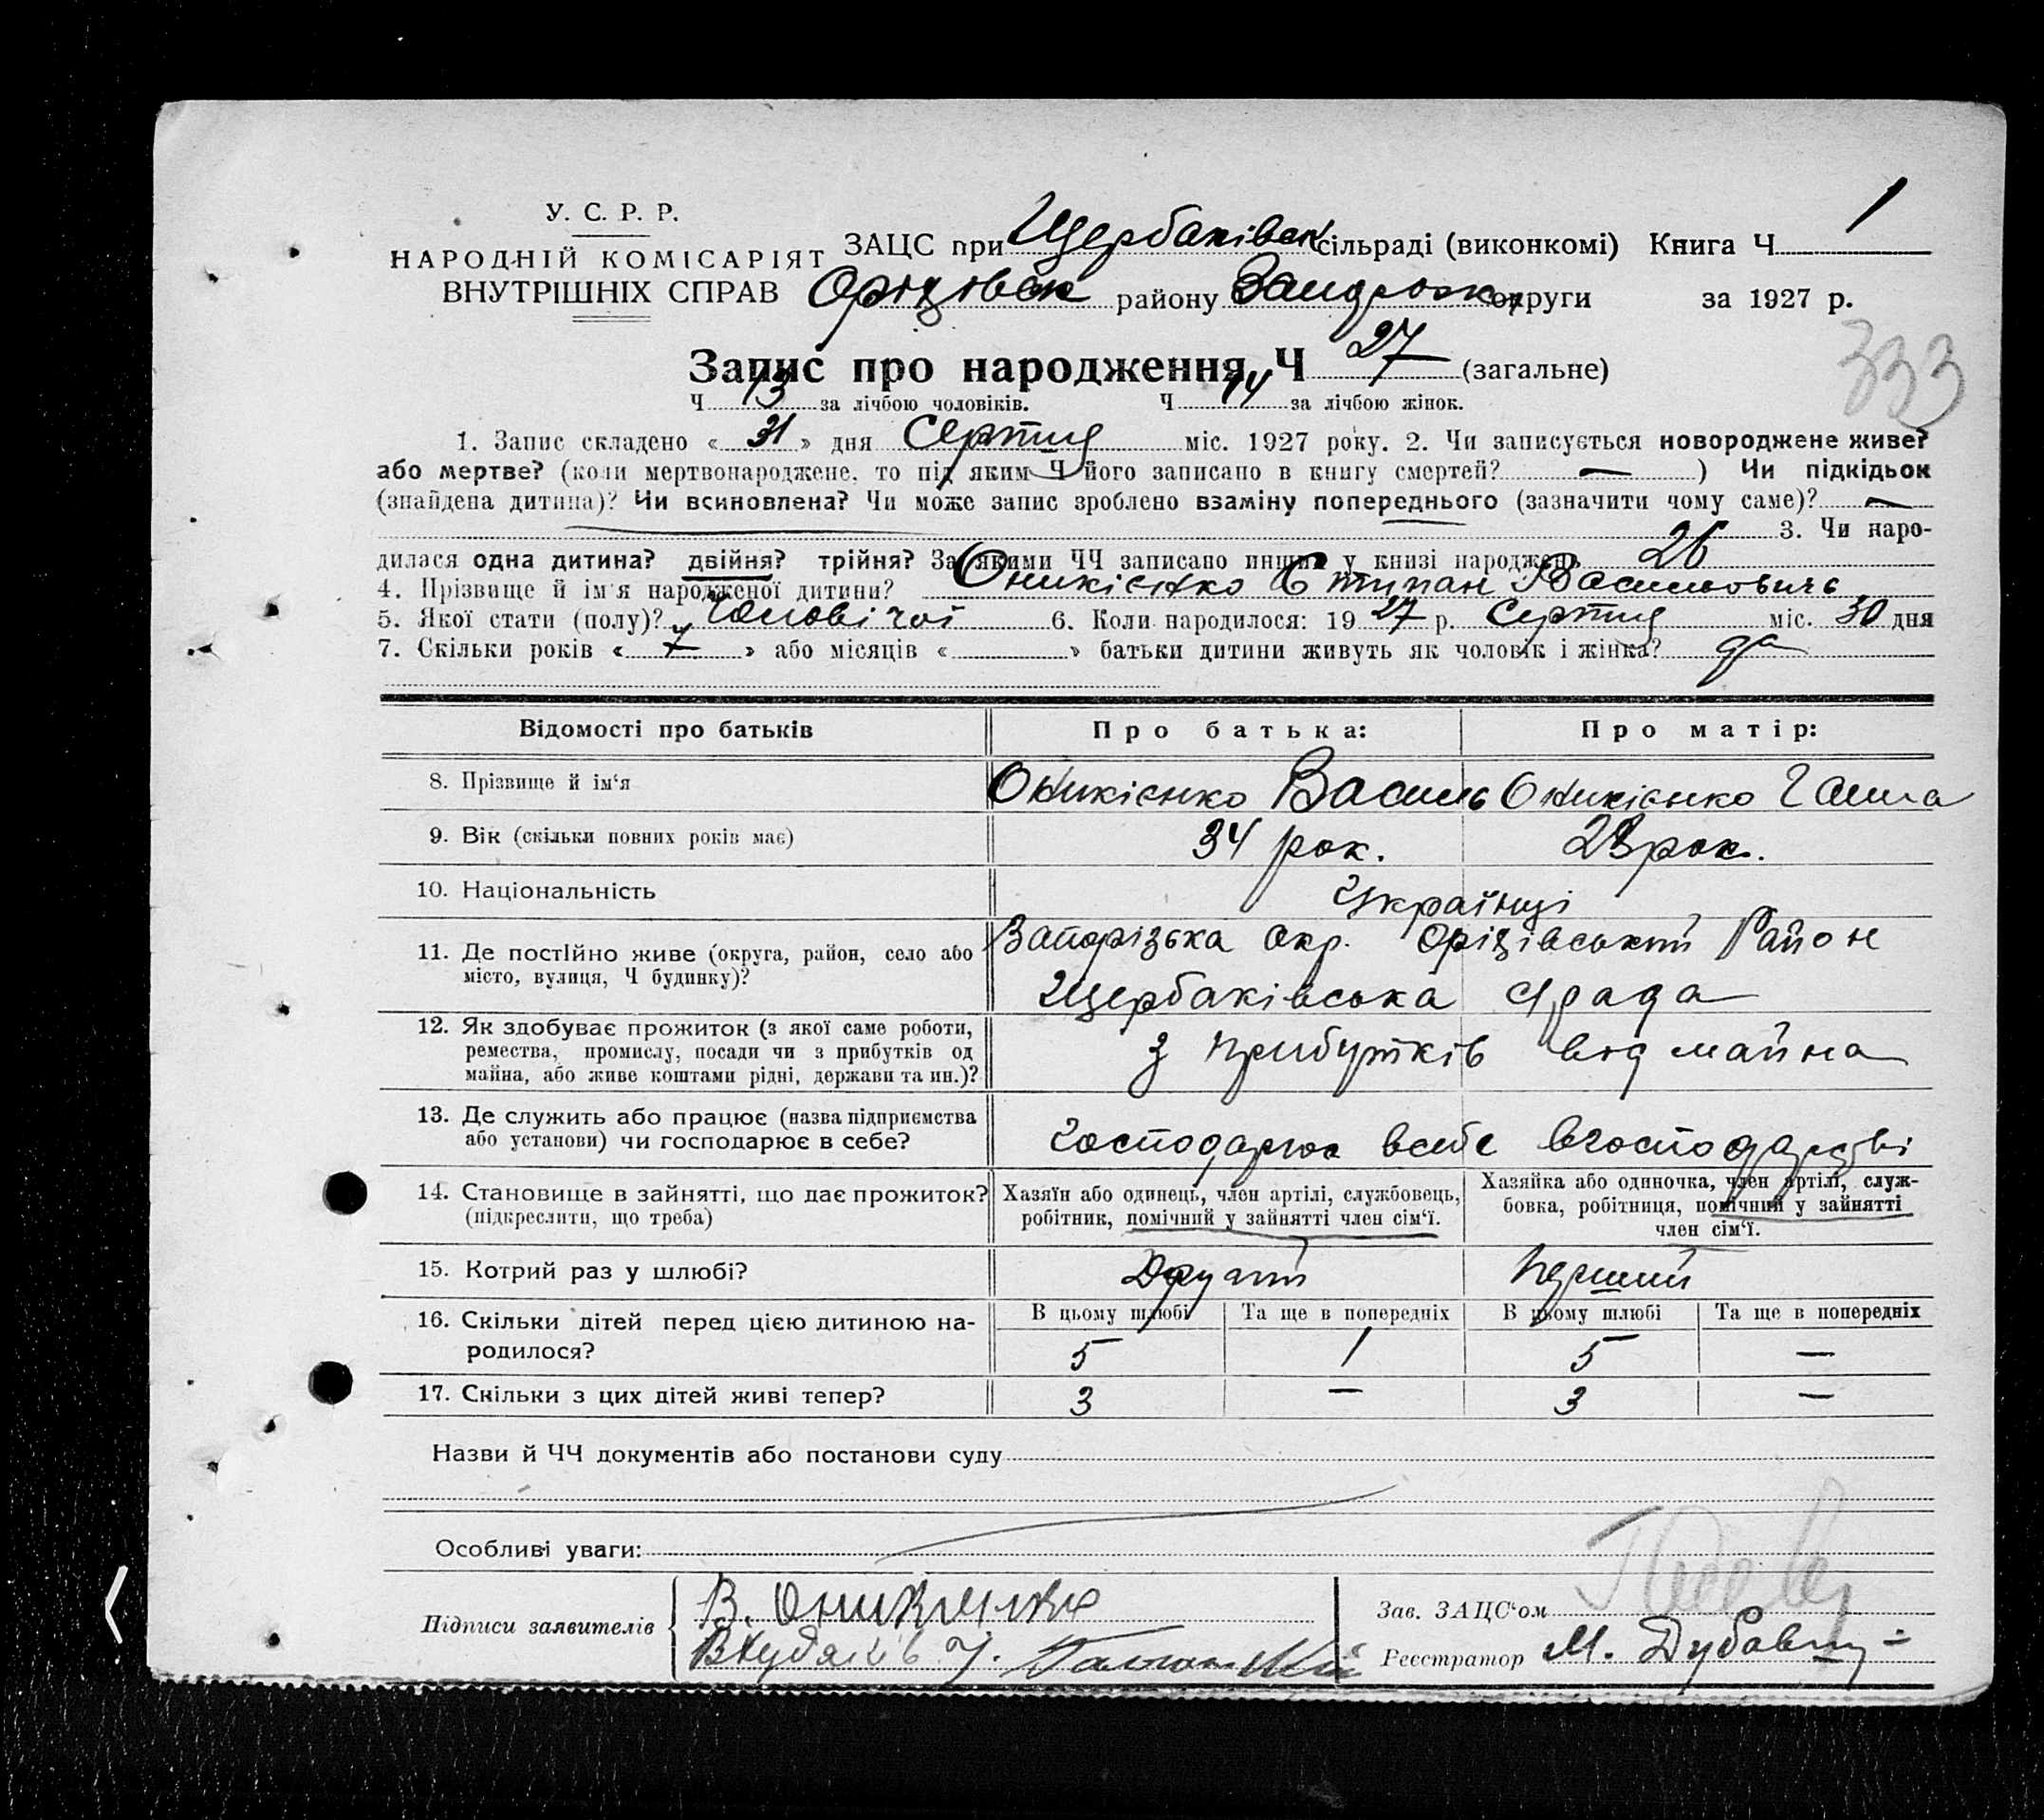 У. С. Р. Р.
НАРОДНІЙ КОМІСАРІЯТ
ВНУТРІШНІХ СПРАВ
ЗАЦС при Щербаківськ сільраді (виконкомі) Книга Ч 1
Оріхівськ району Запорожк округи за 1927 р.
333
Запис про народження Ч 27 (загальне)
Ч 13 за лічбою чоловіків. Ч 14 за лічбою жінок.
1. Запис складено « 31 » дня Серпня міс. 1927 року. 2. Чи записується новороджене живе?
або мертве? (коли мертвонароджене, то під яким Ч його записано в книгу смертей? — ) Чи підкідьок
(знайдена дитина)? Чи всиновлена? Чи може запис зроблено взаміну попереднього (зазначити чому саме)? —
3. Чи наро-
дилася одна дитина? двійня? трійня? За якими ЧЧ записано инших у книзі народжень 26
4. Прізвище й ім'я народженої дитини? Оникієнко Стипан Васильовичь
5. Якої стати (полу)? Чоловічої 6. Коли народилося: 1927 р. Серпня міс. 30 дня
7. Скільки років « 7 » або місяців « » батьки дитини живуть як чоловік і жінка? да
Відомості про батьків Про батька: Про матір:
8. Прізвище й ім'я Оникієнко Василь Оникієнко Ганна
9. Вік (скільки повних років має) 34 рок. 28 рок.
10. Національність Українці
11. Де постійно живе (округа, район, село або
місто, вулиця, Ч будинку)?
Запорізька Окр. Оріхівський Район
Щербаківська с/рада
12. Як здобуває прожиток (з якої саме роботи,
ремества, промислу, посади чи з прибутків од
майна, або живе коштами рідні, держави та ин.)?
з прибутків від майна
13. Де служить або працює (назва підприємства
або установи) чи господарює в себе?
Господарює всебе вгосподарстві
14. Становище в зайнятті, що дає прожиток?
(підкреслити, що треба)
Хазяїн або одинець, член артілі, службовець,
робітник, помічний у зайнятті член сім'ї.
Хазяйка або одиночка, член артілі, служ-
бовка, робітниця, помічний у зайнятті
член сім'ї.
15. Котрий раз у шлюбі? Другий Перший
16. Скільки дітей перед цією дитиною на-
родилося?
В цьому шлюбі Та ще в попередніх В цьому шлюбі Та ще в попередніх
5 1 5 —
17. Скільки з цих дітей живі тепер? 3 — 3 —
Назви й ЧЧ документів або постанови суду
Особливі уваги:
Підписи заявителів
В. Оникиенко
Зав. ЗАЦС'ом
Реєстратор М. Дубовц